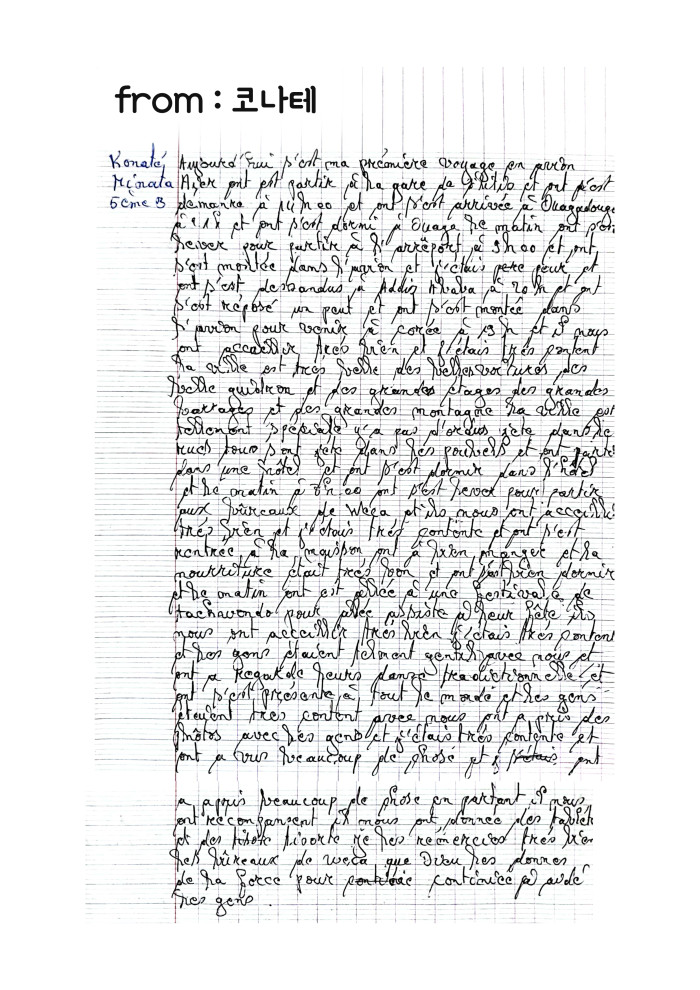 from : 코나테
Konaté Aujourd'hui s'est ma première voyage en avion
Minata Hier ont est partir à la gare de et ont s'est
5ème B démarré à 14h00 et ont s'est arrivée à Ouagadougou
à 18 et ont s'est dormi à Ouaga le matin ont s'est
lever pour partir à l'arréport à 9h00 et ont
s'est montée dans l'avion et j'étais peur et
ont s'est dessandus à Addis Ababa à 20h et ont
s'est réposé un peut et ont s'est montée dans
l'avion pour venir à corée à 19h et il nous
ont accueillir très bien et j'étais très content
La ville est très belle des belles voitures des
belle goudron et des grandes étages des grandes
barrages et des grandes montagne la ville est
tellement spéciale y'a pas d'ordus jeté dans le
rues tous sont jeté dans les poubels et ont partir
dans une hôtel et ont s'est dormir dans l'hôtel
et le matin à 8h00 ont s'est lever pour partir
aux bureaux de Weca et ils nous ont accueillir
très bien et j'étais très contente et ont s'est
rentrée à la maison ont à bien manger et la
nourriture était très bon et ont s'est bien dormir
et le matin ont est allée à une festival de
pour allée assisté à leur fête ils
nous ont acceillir très bien j'étais très content
et les gens étaient telment gentil avec nous et
ont a regardé leurs danse traductionnelle et
ont s'est présenté à tout le monde et les gens
étaient très content avec nous ont a pris des
photos avec les gens et j'étais très contente et
ont a vus beaucoup de chose et ont
a appris beaucoup de chose en partant il nous
ont il nous ont donnée des
et des je les remercies très bien
les bureaux de weca que Dieu les donnes
de la force pour continuée à aidé
les gens.